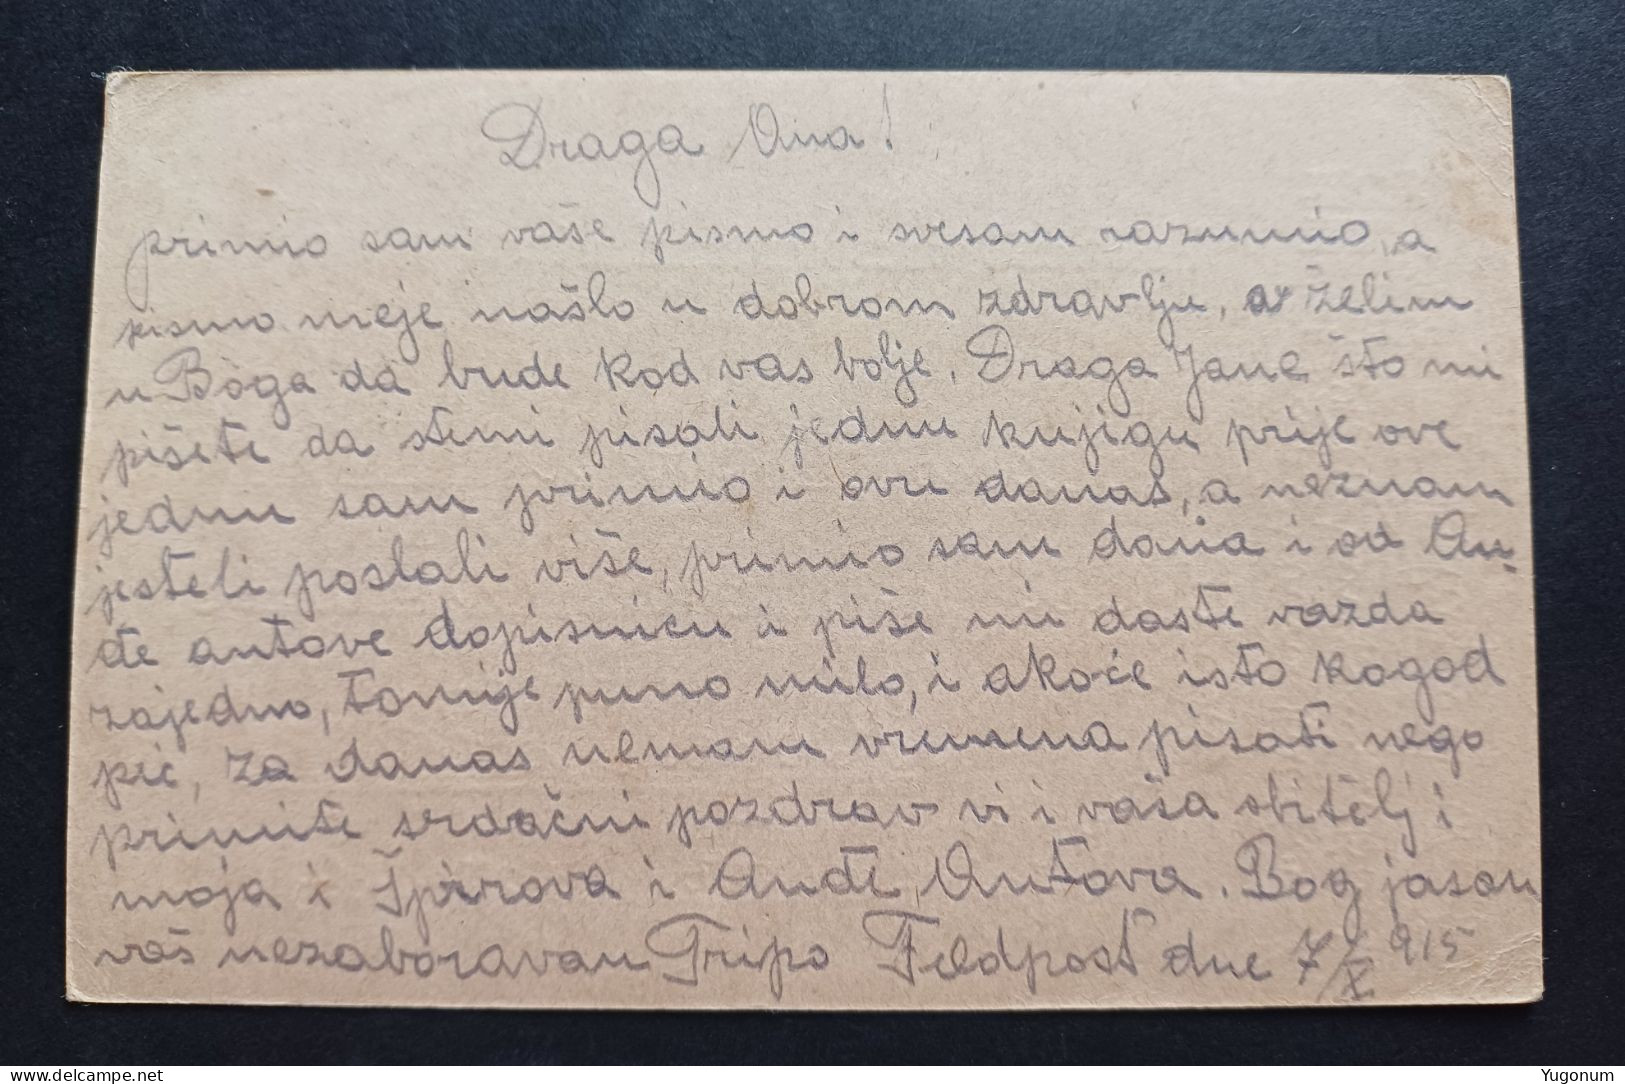 Draga Ana!
primio sam vaše pismo i svesam razumio, a
pismo meje našlo u dobrom zdravlju, a želim
u Boga da bude kod vas bolje. Draga Jane što mi
pišete da stemi pisali jednu knjigu prije ove
jednu sam primio i ovu danas, a neznam
jesteli poslali više, primio sam dania i od An-
đe antove dopisnicu i piše mi daste vazda
zajedno, tomije puno milo, i akoće isto kogod
peć, za danas nemam vremena pisati nego
primite srdačni pozdrav vi i vaša obitelj i
moja i Špirova i Anđe Antova. Bog jasam
vaš nezaboravan Tripo Feldpost dne 7/X 915
Yugonum